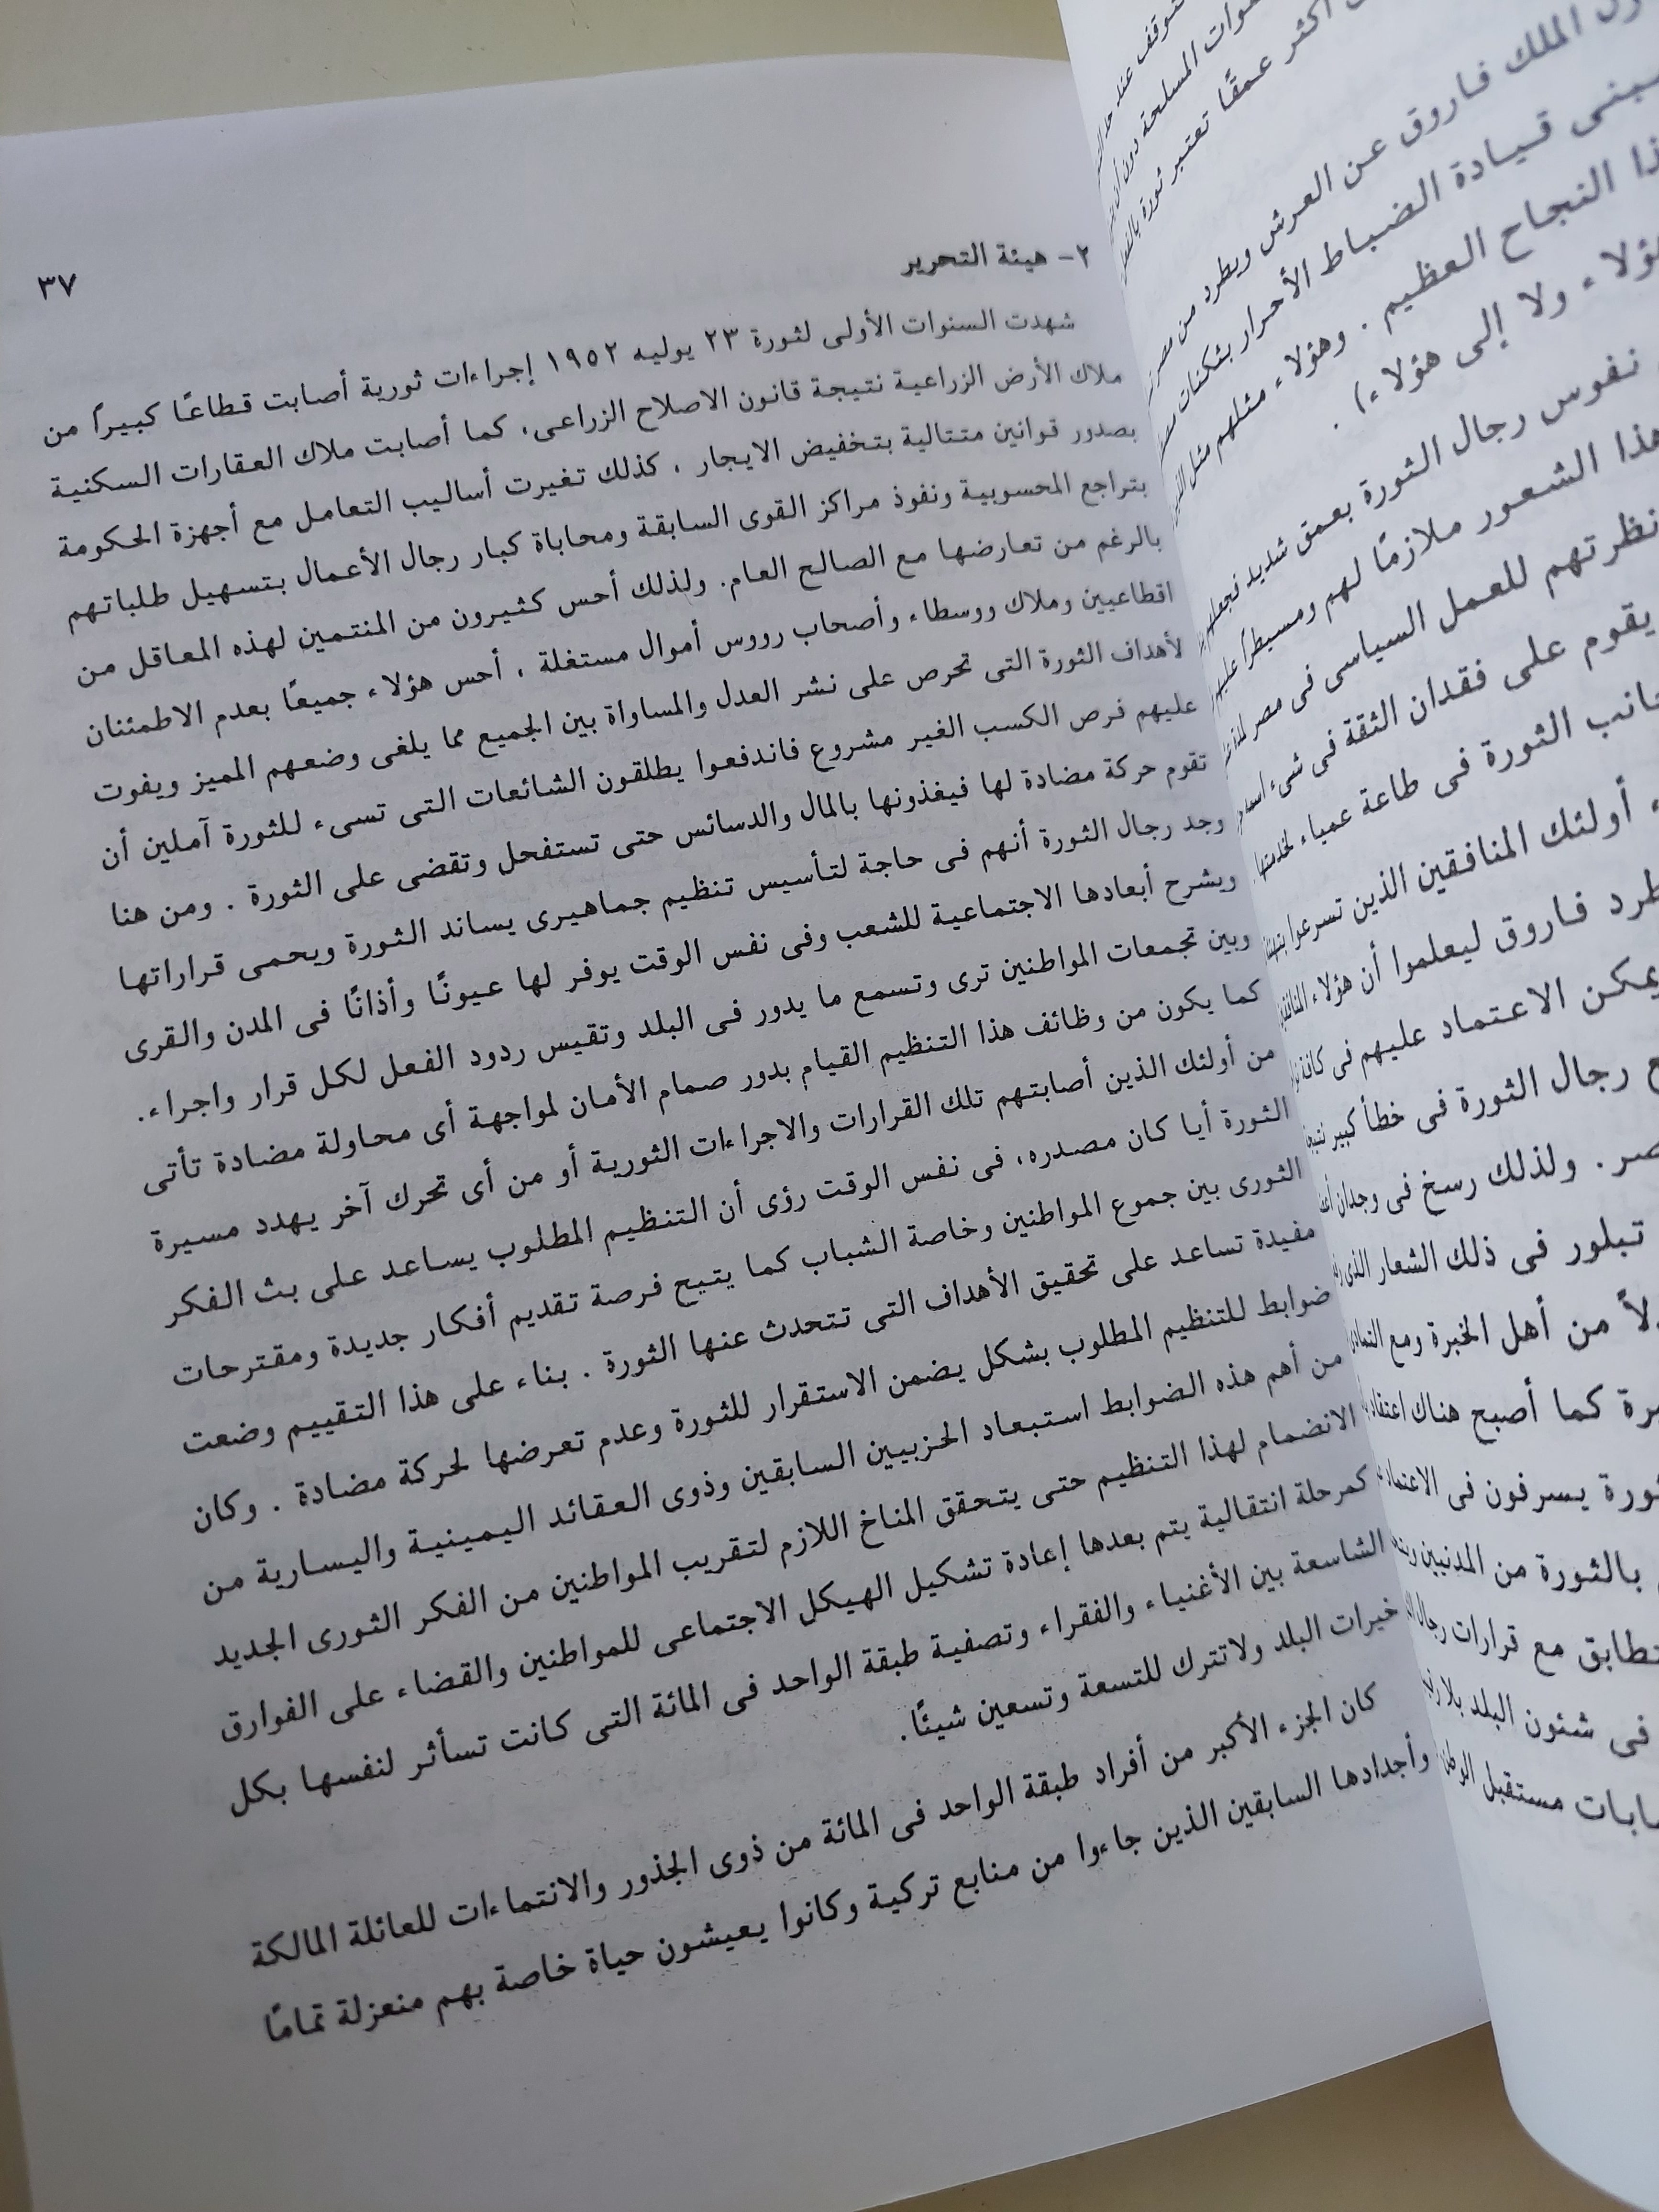 ٣٧
٢- هيئة التحرير
شهدت السنوات الأولى لثورة ٢٣ يوليه ١٩٥٢ إجراءات ثورية أصابت قطاعًا كبيراً من
ملاك الأرض الزراعية نتيجة قانون الاصلاح الزراعى، كما أصابت ملاك العقارات السكنية
بصدور قوانين متتالية بتخفيض الايجار ، كذلك تغيرت أساليب التعامل مع أجهزة الحكومة
بتراجع المحسوبية ونفوذ مراكز القوى السابقة ومحاباة كبار رجال الأعمال بتسهيل طلباتهم
بالرغم من تعارضها مع الصالح العام. ولذلك أحس كثيرون من المنتمين لهذه المعاقل من
اقطاعيين وملاك ووسطاء وأصحاب رووس أموال مستغلة ، أحس هؤلاء جميعًا بعدم الاطمئنان
لأهداف الثورة التى تحرص على نشر العدل والمساواة بين الجميع مما يلغى وضعهم المميز ويفوت
عليهم فرص الكسب الغير مشروع فاندفعوا يطلقون الشائعات التى تسىء للثورة آملين أن
تقوم حركة مضادة لها فيغذونها بالمال والدسائس حتى تستفحل وتقضى على الثورة . ومن هنا
وجد رجال الثورة أنهم فى حاجة لتأسيس تنظيم جماهيرى يساند الثورة ويحمى قراراتها
ويشرح أبعادها الاجتماعية للشعب وفى نفس الوقت يوفر لها عيونًا وأذانًا فى المدن والقرى
وبين تجمعات المواطنين ترى وتسمع ما يدور فى البلد وتقيس ردود الفعل لكل قرار واجراء.
كما يكون من وظائف هذا التنظيم القيام بدور صمام الأمان لمواجهة أى محاولة مضادة تأتى
من أولئك الذين أصابتهم تلك القرارات والاجراءات الثورية أو من أى تحرك آخر يهدد مسيرة
الثورة أيا كان مصدره، فى نفس الوقت رؤى أن التنظيم المطلوب يساعد على بث الفكر
الثورى بين جموع المواطنين وخاصة الشباب كما يتيح فرصة تقديم أفكار جديدة ومقترحات
مفيدة تساعد على تحقيق الأهداف التى تتحدث عنها الثورة . بناء على هذا التقييم وضعت
ضوابط للتنظيم المطلوب بشكل يضمن الاستقرار للثورة وعدم تعرضها لحركة مضادة . وكان
من أهم هذه الضوابط استبعاد الحزبيين السابقين وذوى العقائد اليمينية واليسارية من
الانضمام لهذا التنظيم حتى يتحقق المناخ اللازم لتقريب المواطنين من الفكر الثورى الجديد
كمرحلة انتقالية يتم بعدها إعادة تشكيل الهيكل الاجتماعى للمواطنين والقضاء على الفوارق
الشاسعة بين الأغنياء والفقراء وتصفية طبقة الواحد فى المائة التى كانت تسأثر لنفسها بكل
خيرات البلد ولاتترك للتسعة وتسعين شيئًا.
كان الجزء الأكبر من أفراد طبقة الواحد فى المائة من ذوى الجذور والانتماءات للعائلة المالكة
وأجدادها السابقين الذين جاءوا من منابع تركية وكانوا يعيشون حياة خاصة بهم منعزلة تمامًا
المسلحة دون أن
أكثر عمقًا تعتبر ثورة
الملك فاروق عن العرش ويطرد من مصر
قيادة الضباط الأحرار بثكنات
النجاح العظيم . وهؤلاء مثلهم مثل
ولا إلى هؤلاء) .
نفوس رجال الثورة بعمق شديد فجعلهم
هذا الشعور ملازمًا لهم ومسيطراً عليهم
نظرتهم للعمل السياسى فى مصر
يقوم على فقدان الثقة فى شىء
الثورة فى طاعة عمياء
أولئك المنافقين الذين تسرعوا
فاروق ليعلموا أن هؤلاء
يمكن الاعتماد عليهم فى
رجال الثورة فى خطأ كبير
ولذلك رسخ فى وجدان
تبلور فى ذلك الشعار الذى
من أهل الخبرة ومع
كما أصبح هناك
يسرفون فى
بالثورة من المدنيين
مع قرارات رجال
فى شئون البلد
مستقبل